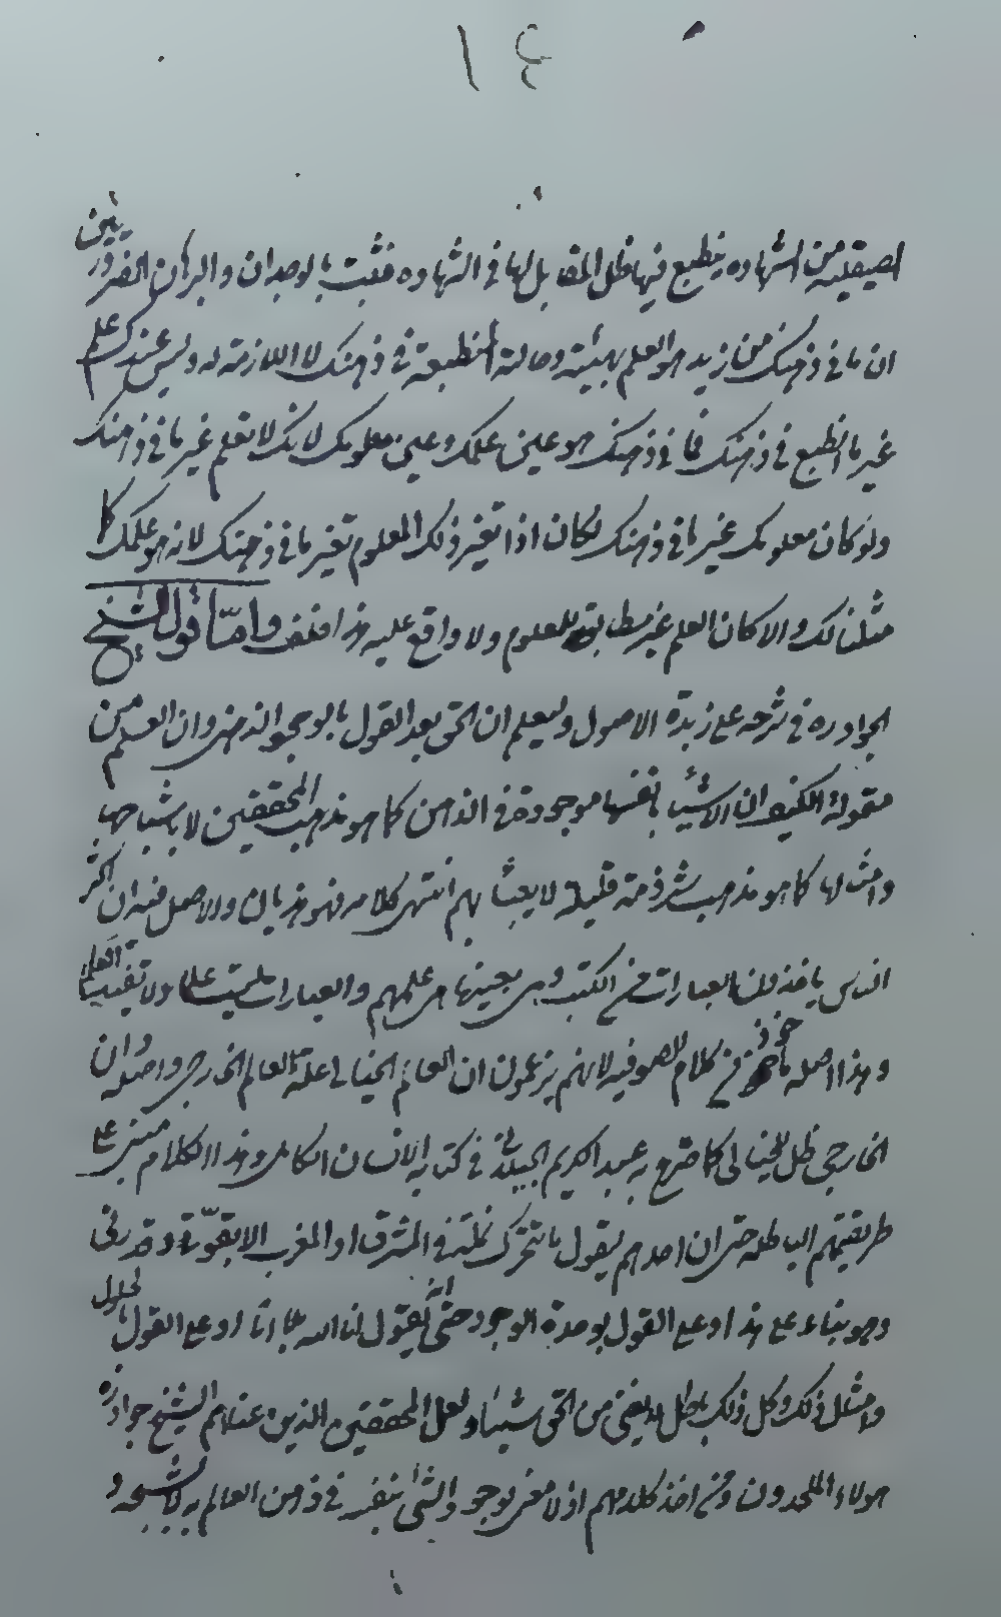 ١٤
الصيقلية من الشهادة ينطبع فيها ظل المقابل لها في الشهادة فثبت بالوجدان والبرهان الضروريين
ان ما في ذهنك من زيد هو العلم بهيئته وحالته المنطبعة في ذهنك لا اللازمة له وليس عندك علم
غير ما انطبع في ذهنك فما في ذهنك هو عين علمك وعين معلومك لانك لا تعلم غير ما في ذهنك
ولو كان معلومك غير ما في ذهنك لكان اذا تغير ذلك المعلوم تغير ما في ذهنك لانه هو علمك كما
مثلنا لك والا كان العلم غير مطابق للمعلوم ولا واقع عليه هذا خلف وامّا قول الشيخ
الجواد ره في شرحه على زبدة الاصول وليعلم ان الحق بعد القول بالوجود الذهني وان العلم من
مقولة الكيف ان الاشياء بانفسها موجودة في الذهن كما هو مذهب المحققين لا باشباحها
وامثالها كما هو مذهب شرذمة قليلة لا يعبأ بهم انتهى كلامه فهو هذيان والاصل فيه ان اكثر
الناس ياخذون العبارات من الكتب وهي بعينها هي علمهم والعبارات ليست علما ولا تفيد العلم
وهذا اصله ماخوذ من كلام الصوفيه لانهم يزعمون ان العالم الخيالي علة العالم الخارجي واصله وان
الخارجي ظل للخيالي كما صرّح به عبد الكريم الجيلاني في كتابه الانسان الكامل وهذا الكلام مبني على
طريقتهم الباطلة حتى ان احدهم يقول ما تتحرك نملة في المشرق او المغرب الا بقوّتي وقدرتي
وهو بناء على هذا او على القول بوحدة الوجود حتى انه يقول انا الله بلا انا او على القول بالحلول
وامثال ذلك وكل ذلك باطل لا يغني من الحق شيئا ولعل المحققين الذين عناهم الشيخ جواد ره
هولاء الملحدون ومن اخذ كلامهم اذ لا معنى لوجود الشئ بنفسه في ذهن العالم به لا بشبحه و